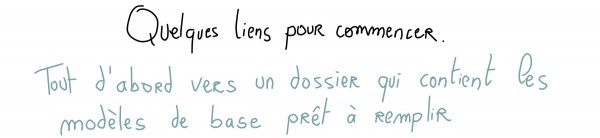 Quelques liens pour commencer.
Tout d'abord vers un dossier qui contient les
modèles de base prêt à remplir